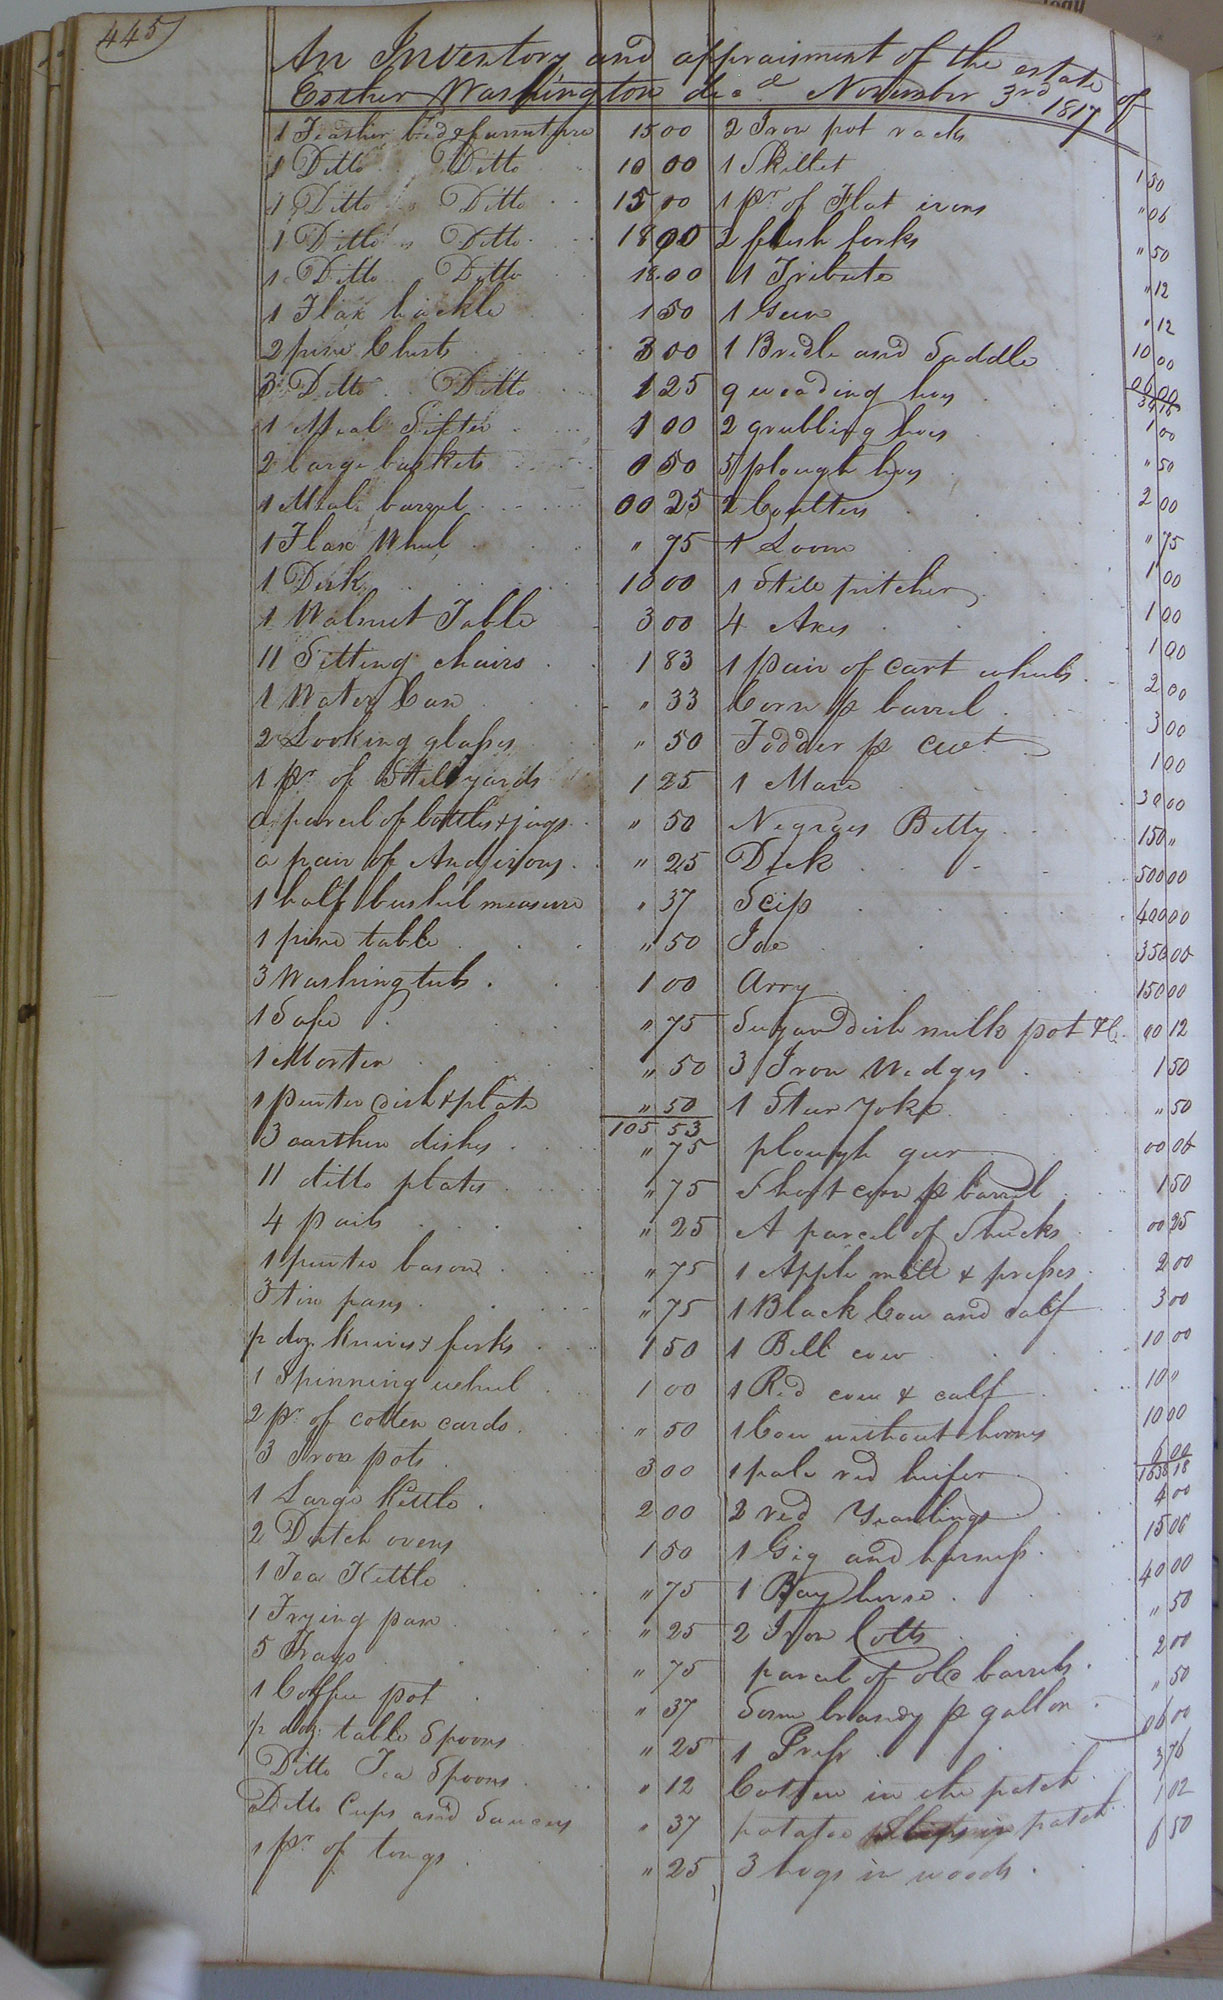 445
An Inventory and appraisment of the estate of
Esther Washington decd November 3rd 1817
1 Feather bed & furniture 15 00
1 Ditto Ditto 10 00
1 Ditto Ditto 15 00
1 Ditto Ditto 18 00
1 Ditto Ditto 18.00
1 Flax hackle 1 50
2 pine Chests 3 00
3 Ditto Ditto 1 25
1 Meal Sifter 1 00
2 large baskets 0 50
1 Meal barrel 00 25
1 Flax Wheel " 75
1 Desk 10 00
1 Walnut Table 3 00
11 Sitting chairs 1 83
1 Water Can " 33
2 Looking glasses " 50
1 pr of Stillyards 1 25
a parcel of bottles & jugs " 50
a pair of Andirons " 25
1 half bushel measure " 37
1 pine table " 50
3 Washing tubs 1 00
1 Safe " 75
1 Morter " 50
1 pewter dish & plate " 50
105 53
3 earthen dishes " 75
11 ditto plates " 75
4 pails " 25
1 pewter bason " 75
3 tin pans " 75
p doz. knives & forks 1 50
1 Spinning wheel 1 00
2 pr of cotten cards " 50
3 Iron pots 3 00
1 Large Kettle 2 00
2 Dutch ovens 1 50
1 Tea Kettle " 75
1 Frying pan " 25
5 Trays " 75
1 Coffee pot " 37
p doz. table Spoons " 25
Ditto Tea Spoons " 12
Ditto Cups and Saucers " 37
1 pr of tongs " 25
2 Iron pot racks 1 50
1 Skillet " 06
1 pr of Flat irons " 50
2 flesh forks " 12
1 Tribute " 12
1 Gun 10 00
1 Bridle and Saddle 06 00
34 18
9 weeading hoes 1 00
2 grubbling hoes " 50
5 plough hoes 2 00
2 Coulters " 75
1 Loom 1 00
1 Still pitcher 1 00
4 Axes 1 00
1 pair of cart wheels 2 00
Corn p barrel 3 00
Fodder p Cwt 1 00
1 Mare 30 00
Negroes Betty 150 "
Dick 500 00
Scip 400 00
Joe 350 00
Arry 150 00
Sugar dish milk pot &C. 00 12
3 Iron Wedges 1 50
1 Steer Yoke " 50
plough gear 00 06
Short corn p barrel 1 50
A parcel of Shucks 00 25
1 Apple mill & presses 2 00
1 Black Cow and calf 3 00
1 Bell cow 10 00
1 Red cow & calf 10 "
1 Cow without hornes 10 00
1 pale red heifer 6 00
1638 18
2 red Yearlings 4 00
1 Gig and harness 15 00
1 Bay horse 40 00
2 Iron Colts " 50
parcel of old barrels 2 00
Some brandy p gallon " 50
1 Press 06 00
Cotten in the patch 3 76
potatoe patch 1 02
3 hogs in woods 6 50